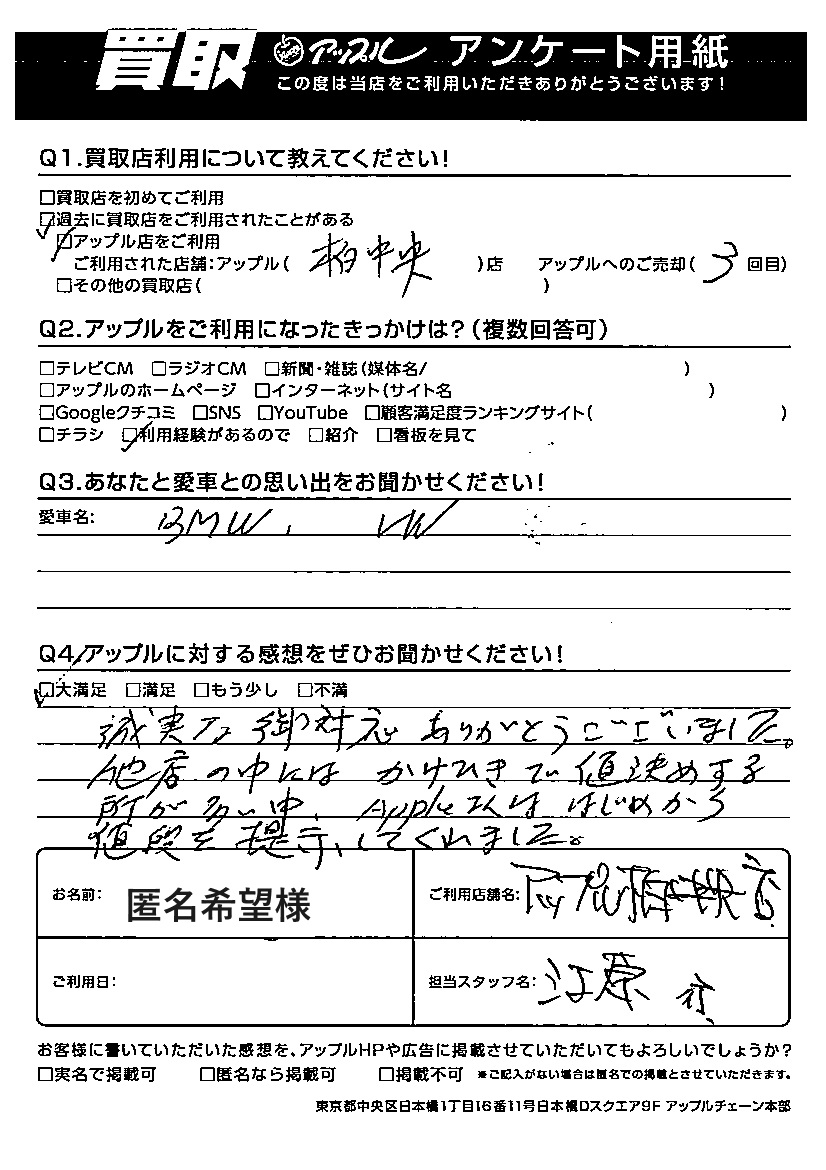 買取 アップル アンケート用紙
この度は当店をご利用いただきありがとうございます!
Q1.買取店利用について教えてください!
□買取店を初めてご利用
□過去に買取店をご利用されたことがある
□アップル店をご利用
ご利用された店舗:アップル( 柏中央 )店 アップルへのご売却( 3 回目)
□その他の買取店( )
Q2.アップルをご利用になったきっかけは?(複数回答可)
□テレビCM □ラジオCM □新聞・雑誌(媒体名/ )
□アップルのホームページ □インターネット(サイト名 )
□Googleクチコミ □SNS □YouTube □顧客満足度ランキングサイト( )
□チラシ □利用経験があるので □紹介 □看板を見て
Q3.あなたと愛車との思い出をお聞かせください!
愛車名: BMW, VW
Q4.アップルに対する感想をぜひお聞かせください!
□大満足 □満足 □もう少し □不満
誠実な御対応ありがとうございました。
他店の中にはかけひきで値決めする
所が多い中、Appleさんははじめから
値段を提示してくれました。
お名前: 匿名希望様 ご利用店舗名: アップル柏中央店
ご利用日: 担当スタッフ名: 江原 様
お客様に書いていただいた感想を、アップルHPや広告に掲載させていただいてもよろしいでしょうか?
□実名で掲載可 □匿名なら掲載可 □掲載不可 ※ご記入がない場合は匿名での掲載とさせていただきます。
東京都中央区日本橋1丁目16番11号日本橋Dスクエア9F アップルチェーン本部